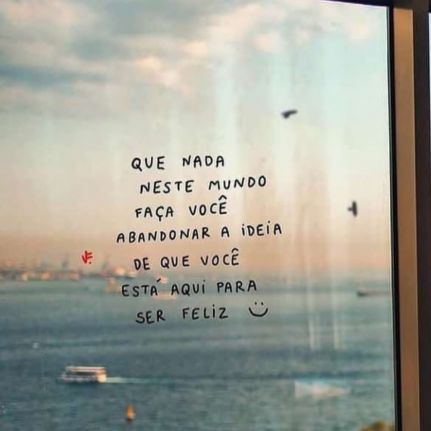 QUE NADA
NESTE MUNDO
FAÇA VOCÊ
ABANDONAR A iDEiA
DE QUE VOCÊ
ESTÁ AQUi PARA
SER FELiZ